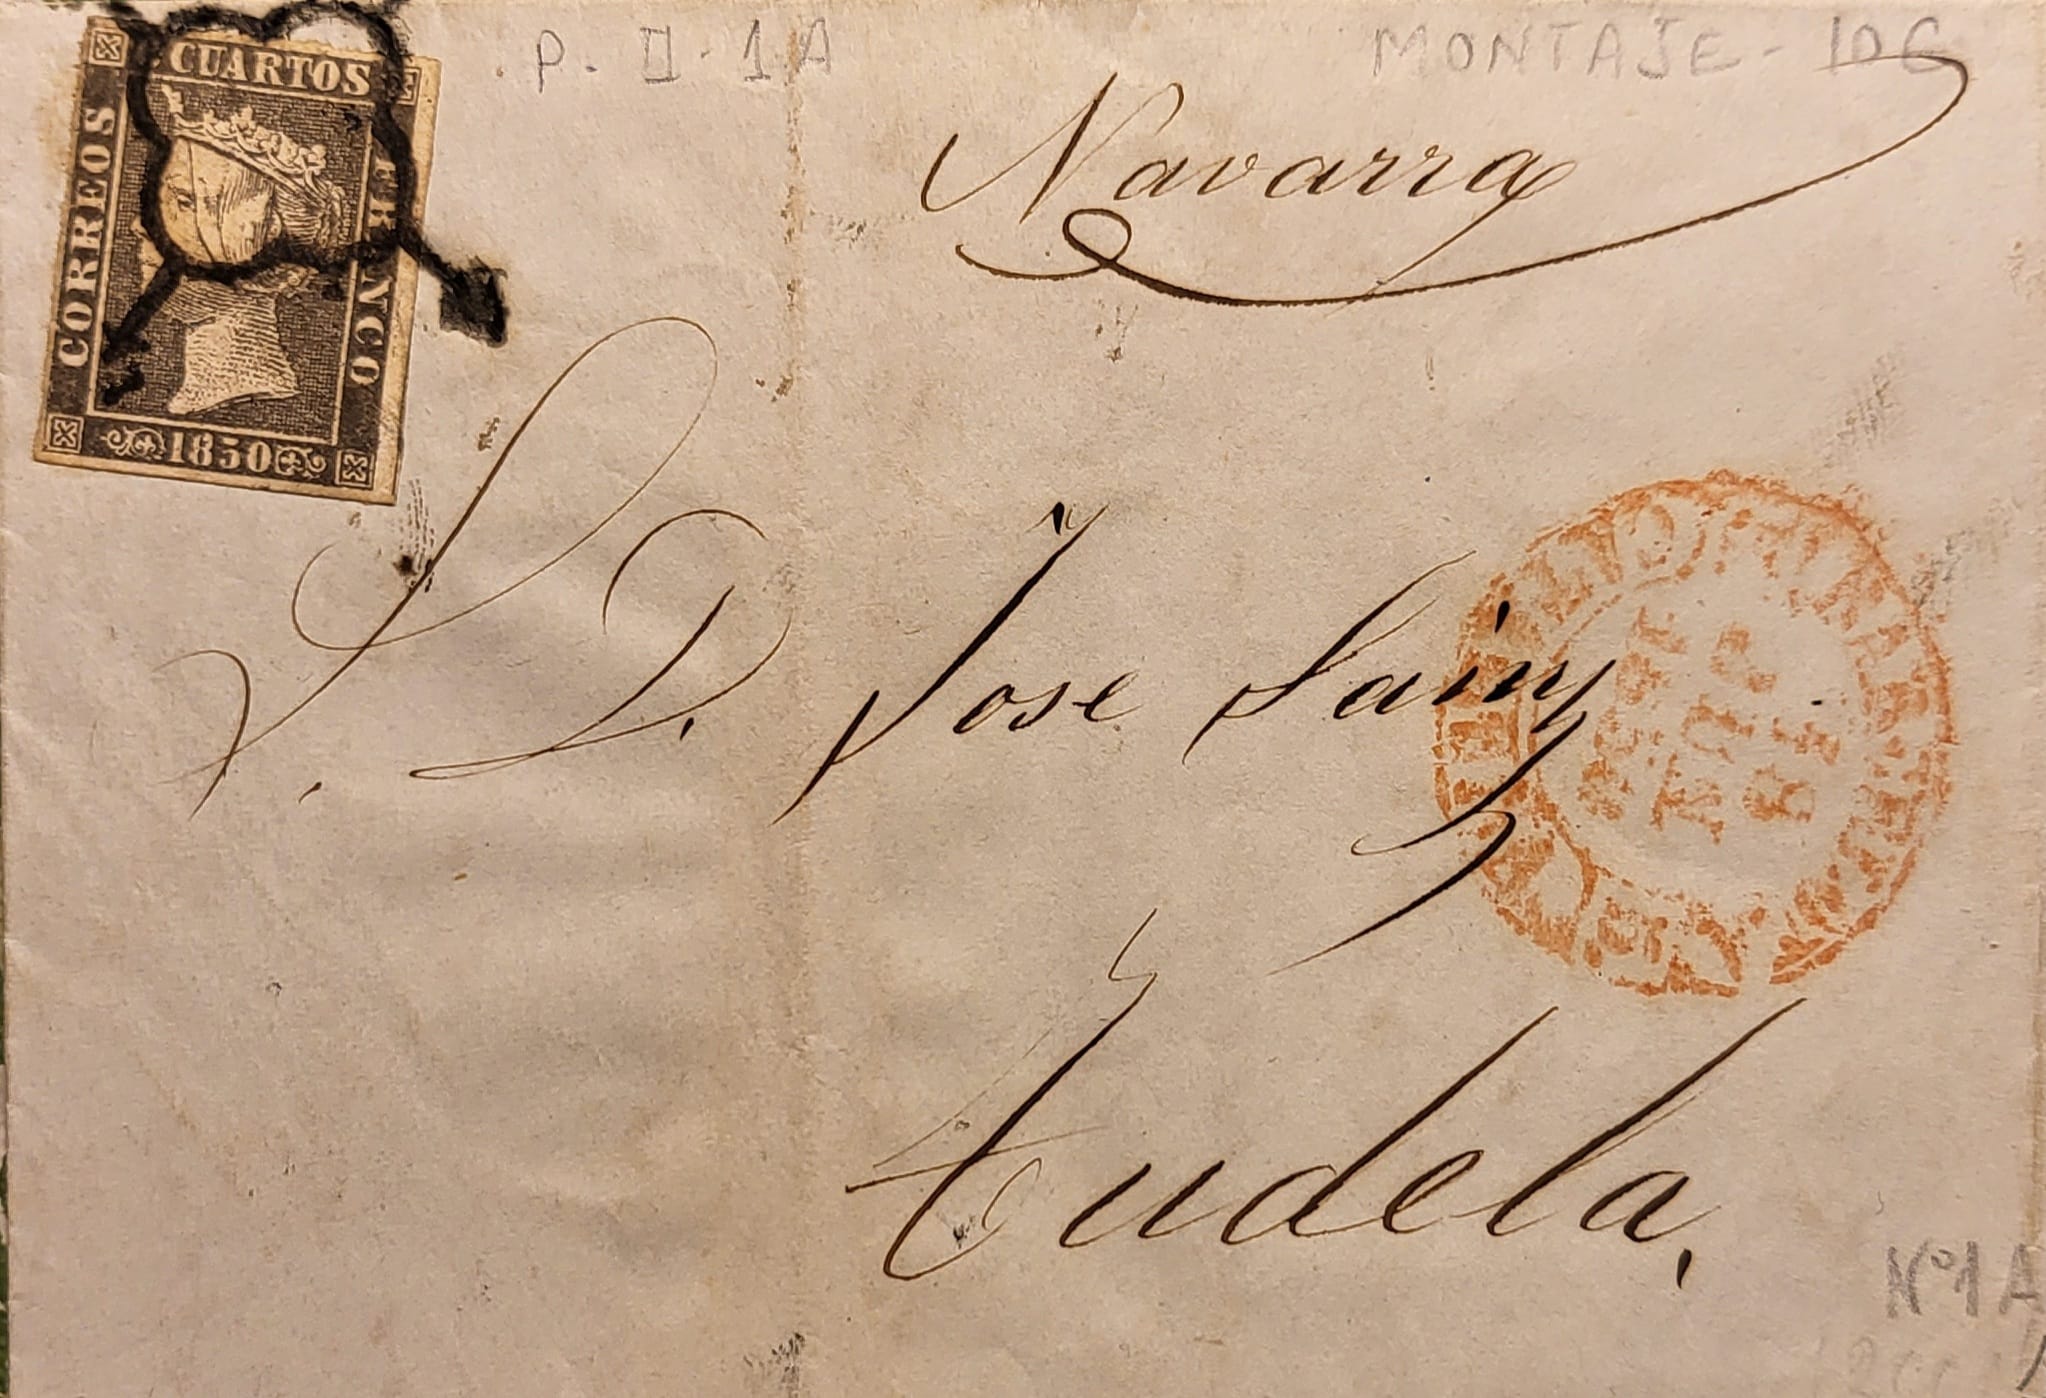 CUARTOS
CORREOS
FRANCO
1850
P. II. 1A
MONTAJE -
Navarra
S. D. José Sainz
Tudela.
Nº 1 A